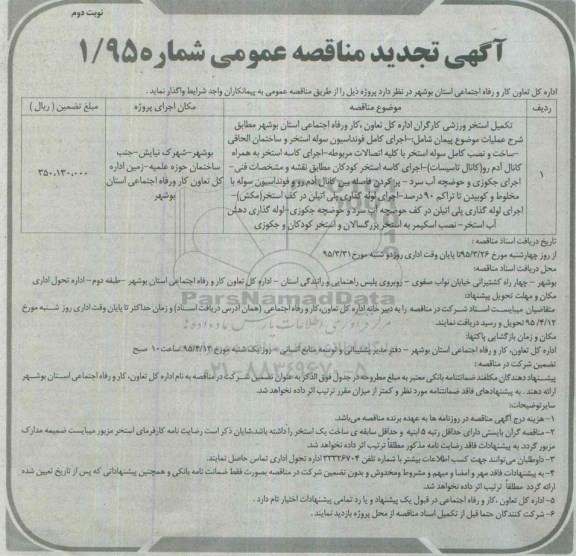 نوبت دوم
آگهی تجدید مناقصه عمومی شماره ۱/۹۵
اداره کل تعاون کار و رفاه اجتماعی استان بوشهر در نظر دارد پروژه ذیل را از طریق مناقصه عمومی به پیمانکاران واجد شرایط واگذار نماید .
ردیف موضوع مناقصه مکان اجرای پروژه مبلغ تضمین ( ریال )
تکمیل استخر ورزشی کارگران اداره کل تعاون ،کار ورفاه اجتماعی استان بوشهر مطابق
شرح عملیات موضوع پیمان شامل:-اجرای کامل فونداسیون سوله استخر و ساختمان الحاقی
-ساخت و نصب کامل سوله استخر با کلیه اتصالات مربوطه-اجرای کاسه استخر به همراه
کانال آدم رو(کانال تاسیسات)-اجرای کاسه استخر کودکان مطابق نقشه و مشخصات فنی-
اجرای جکوزی و حوضچه آب سرد – پر کردن فاصله بین کانال آدم رو و فونداسیون سوله با
مخلوط و کوبیدن تا تراکم ۹۰ درصد-اجرای لوله گذاری پلی اتیلن در کف استخر(مکش)-
اجرای لوله گذاری پلی اتیلن در کف حوضچه آب سرد و حوضچه جکوزی-لوله گذاری دهش
آب استخر- نصب اسکیمر به استخر بزرگسالان و استخر کودکان و جکوزی
۱
بوشهر-شهرک نیایش-جنب
ساختمان حوزه علمیه-زمین اداره
کل تعاون کار ورفاه اجتماعی استان
بوشهر
۳۵۰،۱۳۰،۰۰۰
تاریخ دریافت اسناد مناقصه :
از روز چهارشنبه مورخ ۹۵/۳/۲۶تا پایان وقت اداری روزدو شنبه مورخ ۹۵/۳/۳۱
محل دریافت اسناد مناقصه:
بوشهر – چهار راه کشتیرانی خیابان نواب صفوی – روبروی پلیس راهنمایی و رانندگی استان – اداره کل تعاون کار و رفاه اجتماعی استان بوشهر -طبقه دوم- اداره تحول اداری
مکان و مهلت تحویل پیشنهاد:
متقاضیان میبایست اسناد شرکت در مناقصه را به دبیرخانه اداره کل تعاون،کار و رفاه اجتماعی (همان آدرس دریافت اسناد) و زمان حداکثر تا پایان وقت اداری روز شنبه مورخ
۹۵/۴/۱۲ تحویل و رسید دریافت نمایند.
مکان و زمان بازگشایی پاکتها:
اداره کل تعاون، کار و رفاه اجتماعی استان بوشهر – دفتر مدیر پشتیبانی و توسعه منابع انسانی – روزیک شنبه مورخ ۹۵/۴/۱۳ ساعت ۱۰ صبح
تضمین شرکت در مناقصه :
پیشنهاد دهندگان مکلفند ضمانتنامه بانکی معتبر به مبلغ مطروحه در جدول فوق الذکر به عنوان تضمین شرکت در مناقصه به نام اداره کل تعاون، کار و رفاه اجتماعی استان بوشهر
ارائه دهند . به پیشنهادهای فاقد ضمانتنامه مورد نظر و کمتر از میزان مقرر ترتیب اثر داده نخواهد شد.
سایرتوضیحات:
۱- هزینه درج آگهی مناقصه در روزنامه ها به عهده برنده مناقصه می‌باشد.
۲- مناقصه گران بایستی دارای حداقل رتبه ۵ ابنیه و حداقل سابقه ی ساخت یک استخر را داشته باشد.شایان ذکر است رضایت نامه کارفرمای استخر مزبور میبایست ضمیمه مدارک
مزبور گردد به پیشنهادات فاقد رضایت نامه مذکور مطلقاً ترتیب اثر داده نخواهد شد.
۳- داوطلبان می‌توانند جهت کسب اطلاعات بیشتر با شماره تلفن ۳۳۳۲۶۷۰۴ اداره تحول اداری تماس حاصل نمایند.
۴- به پیشنهادات فاقد مهر و امضا و مبهم و مشروط ومخدوش و بدون تضمین شرکت در مناقصه بصورت فقط ضمانت نامه بانکی و همچنین پیشنهاداتی که پس از تاریخ تعیین شده
ارائه گردد مطلقاً ترتیب اثر داده نخواهد شد.
۵- اداره کل تعاون ،کار و رفاه اجتماعی در قبول یک پیشنهاد و یا رد تمامی پیشنهادات اختیار تام دارد .
۶- شرکت کنندگان حتما قبل از تکمیل اسناد مناقصه از محل پروژه بازدید نمایند .
ParsNamadData
۰۲۱-۸۸۳۴۹۶۷۰-۵